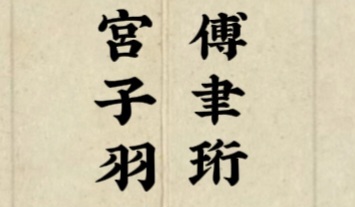 傅聿珩
宮子羽